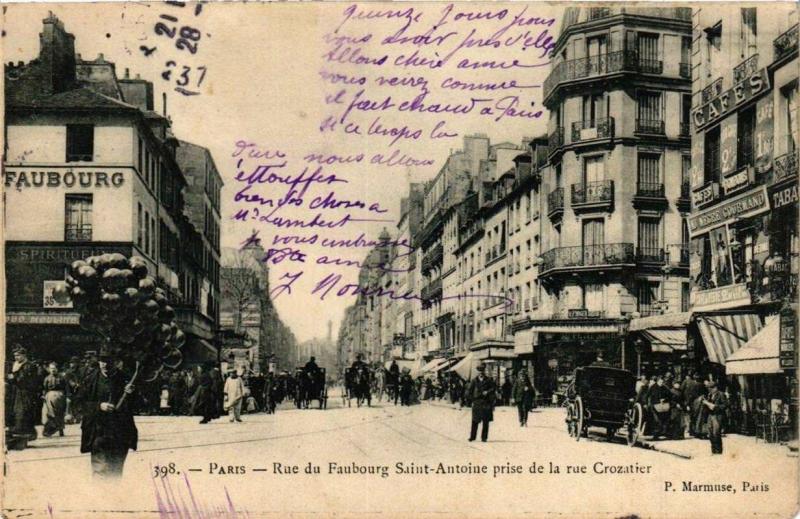 21
28
237
Quinze jours pour
vous avoir près d'elle
Allons chère amie
vous verrez comme
il fait chaud a Paris
si ce temps la
dure nous allons
étouffer
bien des choses a
Mr Lambert
je vous embrasse
Vtre amie
J
FAUBOURG
SPIRITUEUX
CAFES
NEGRE GOURMAND
TABAC
398. — PARIS — Rue du Faubourg Saint-Antoine prise de la rue Crozatier
P. Marmuse, Paris